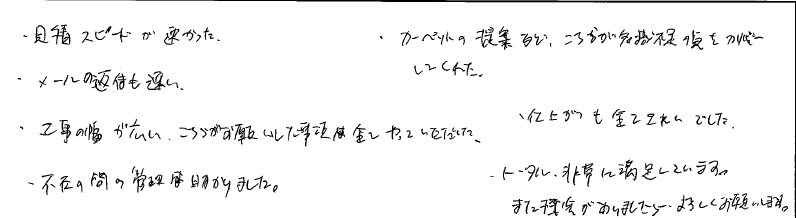 ・見積スピードが速かった。
・メールの返信も速い。
・工事の幅が広い、こちらがお願いした事項は全てやっていただけた。
・不在の間の管理も助かりました。
・カーペットの提案など、こちらが知識不足をカバー
してくれた。
・仕上がりも全てきれいでした。
・トータル、非常に満足しています。
また機会がありましたら、よろしくお願いします。